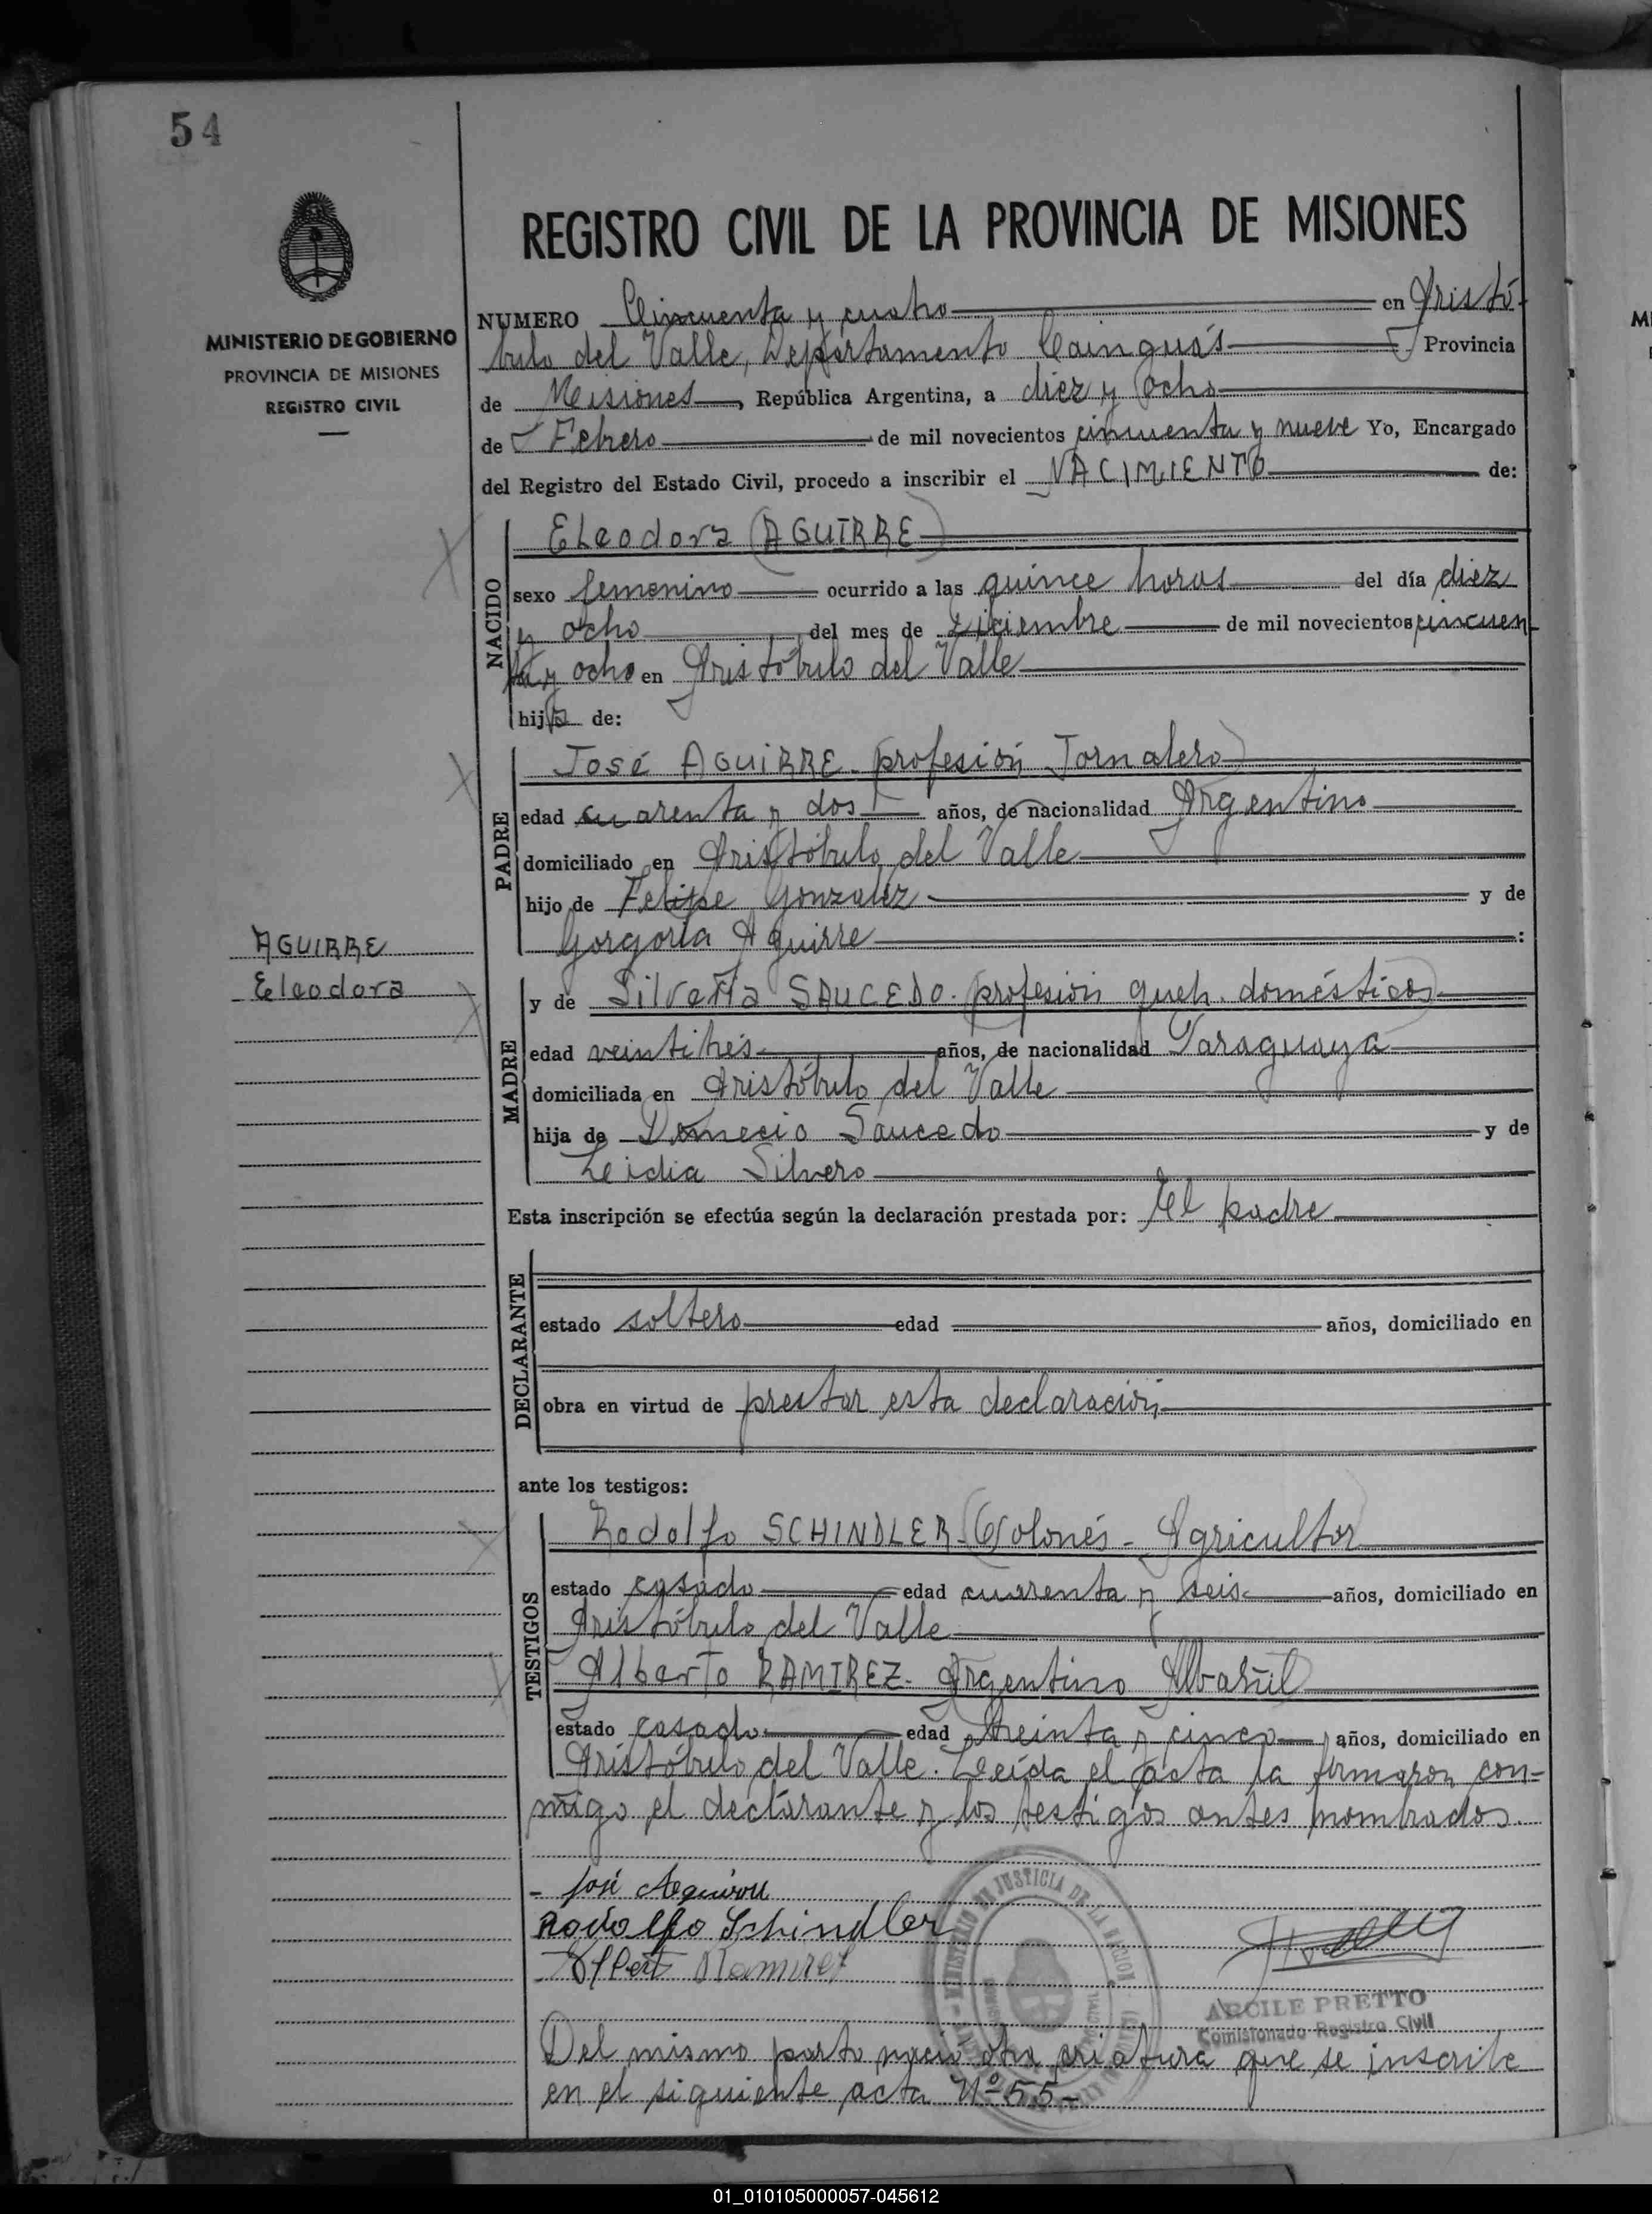 54
MINISTERIO DE GOBIERNO
PROVINCIA DE MISIONES
REGISTRO CIVIL
REGISTRO CIVIL DE LA PROVINCIA DE MISIONES
NUMERO Cincuenta y cuatro en Aristó
bulo del Valle, Departamento Cainguás Provincia
de Misiones, República Argentina, a diez y ocho
de Febrero de mil novecientos cincuenta y nueve Yo, Encargado
del Registro del Estado Civil, procedo a inscribir el NACIMIENTO de:
NACIDO
Eleodora (AGUIRRE)
sexo femenino ocurrido a las quince horas del día diez
y ocho del mes de Diciembre de mil novecientos cincuen
ta y ocho en Aristóbulo del Valle
hija de:
PADRE
José AGUIRRE. (profesión Jornalero)
edad cuarenta y dos años, de nacionalidad Argentino
domiciliado en Aristóbulo del Valle
hijo de Felipe Gonzalez y de
Gorgoria Aguirre :
AGUIRRE
Eleodora
MADRE
y de SAUCEDO. (profesión queh. domésticos)
edad veintitrés años, de nacionalidad Paraguaya
domiciliada en Aristóbulo del Valle
hija de Domecio Saucedo y de
Leidia Silvero
Esta inscripción se efectúa según la declaración prestada por: El padre
DECLARANTE
estado soltero edad años, domiciliado en
obra en virtud de prestar esta declaración
ante los testigos:
TESTIGOS
Rodolfo SCHINDLER. (Polonés - Agricultor
estado casado edad cuarenta y seis años, domiciliado en
Aristóbulo del Valle
Alberto RAMIREZ. Argentino Albañil
estado casado edad treinta y cinco años, domiciliado en
Aristóbulo del Valle. Leída el acta la firmaron con=
migo el declarante y los testigos antes nombrados.
- José Aguirre
Rodolfo Schindler
Ramirez
MINISTERIO DE JUSTICIA DE LA NACION
ARCILE PRETTO
Comisionado Registro Civil
Del mismo parto nació otra criatura que se inscribe
en el siguiente acta Nº 55-
01_010105000057-045612